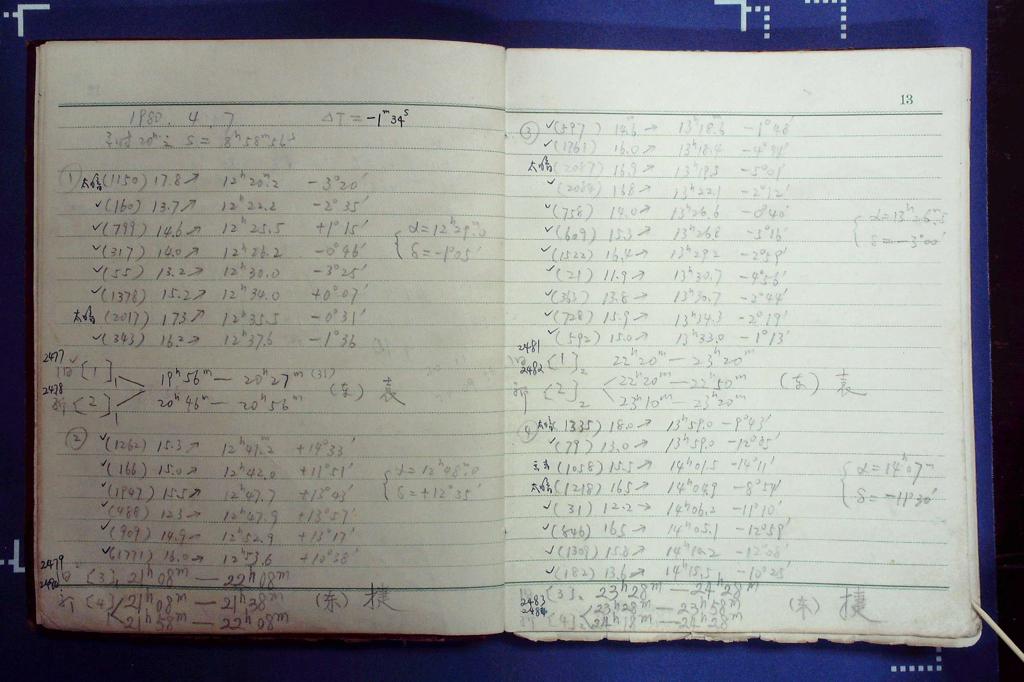 1980. 4. 7 ΔT = -1ᵐ34ˢ
20ʰ S = 8ʰ58ᵐ56ˢ
① 太暗 (1150) 17.8↗ 12ʰ20ᵐ.2 -3°20′
✓(160) 13.7↗ 12ʰ22.2 -2°35′
✓(799) 14.6↗ 12ʰ25.5 +1°15′ α=12ʰ29ᵐ.0
✓(317) 14.0↗ 12ʰ26.2 -0°46′ δ=-1°05′
✓(55) 13.2↗ 12ʰ30.0 -3°25′
✓(1378) 15.2↗ 12ʰ34.0 +0°07′
太暗 (2017) 17.3↗ 12ʰ35.5 -0°31′
✓(343) 16.2↗ 12ʰ37.6 -1°36
2477 旧 [1]₁ 19ʰ56ᵐ — 20ʰ27ᵐ (31) (东) 袁
2478 新 [2]₁ 20ʰ46ᵐ — 20ʰ56ᵐ
② ✓(1262) 15.3↗ 12ʰ41ᵐ.2 +14°33′
✓(166) 15.0↗ 12ʰ42.0 +11°51′ α=12ʰ48ᵐ.0
✓(1947) 15.5↗ 12ʰ47.7 +13°43′ δ=+12°35′
✓(488) 12.3↗ 12ʰ47.9 +13°57′
✓(909) 14.9↗ 12ʰ52.9 +13°17′
✓(1771) 16.0↗ 12ʰ53.6 +10°58′
2479 旧 [3]₁ 21ʰ08ᵐ — 22ʰ08ᵐ
2480 新 [4]₁ 21ʰ08ᵐ — 21ʰ38ᵐ (东) 捷
21ʰ58ᵐ — 22ʰ08ᵐ
13
③ ✓(597) 14.6↗ 13ʰ18ᵐ.6 -1°48′
✓(1761) 16.0↗ 13ʰ18.4 -4°41′
太暗 (2087) 16.9↗ 13ʰ19.5 -5°01′
✓(2084) 16.8↗ 13ʰ22.1 -2°12′
✓(758) 14.0↗ 13ʰ26.6 -0°40′ α=13ʰ26ᵐ.5
✓(609) 15.3↗ 13ʰ26.8 -5°16′ δ=-3°00′
✓(1522) 16.4↗ 13ʰ29.2 -2°59′
✓(21) 11.9↗ 13ʰ30.7 -4°56′
✓(363) 13.8↗ 13ʰ30.7 -2°44′
✓(728) 15.9↗ 13ʰ34.3 -2°19′
✓(592) 15.0↗ 13ʰ33.0 -1°13′
2481 旧 [1]₂ 22ʰ20ᵐ — 23ʰ20ᵐ
2482 新 [2]₂ 22ʰ20ᵐ — 22ʰ50ᵐ (东) 袁
23ʰ10ᵐ — 23ʰ20ᵐ
④ 太暗 (1335) 18.0↗ 13ʰ59.0 -9°43′
✓(79) 13.0↗ 13ʰ59.0 -12°05′
(1058) 15.5↗ 14ʰ01.5 -14°11′ α=14ʰ07ᵐ
太暗 (1218) 16.5↗ 14ʰ04.9 -8°54′ δ=-11°30′
✓(31) 12.2↗ 14ʰ06.2 -11°10′
✓(846) 16.5↗ 14ʰ05.1 -12°59′
✓(1309) 15.8↗ 14ʰ10.2 -12°08′
✓(182) 13.6↗ 14ʰ15.5 -10°25′
2483 旧 [3]₂ 23ʰ28ᵐ — 24ʰ28ᵐ
2484 新 [4]₂ 23ʰ28ᵐ — 23ʰ58ᵐ (东) 捷
24ʰ18ᵐ — 24ʰ28ᵐ